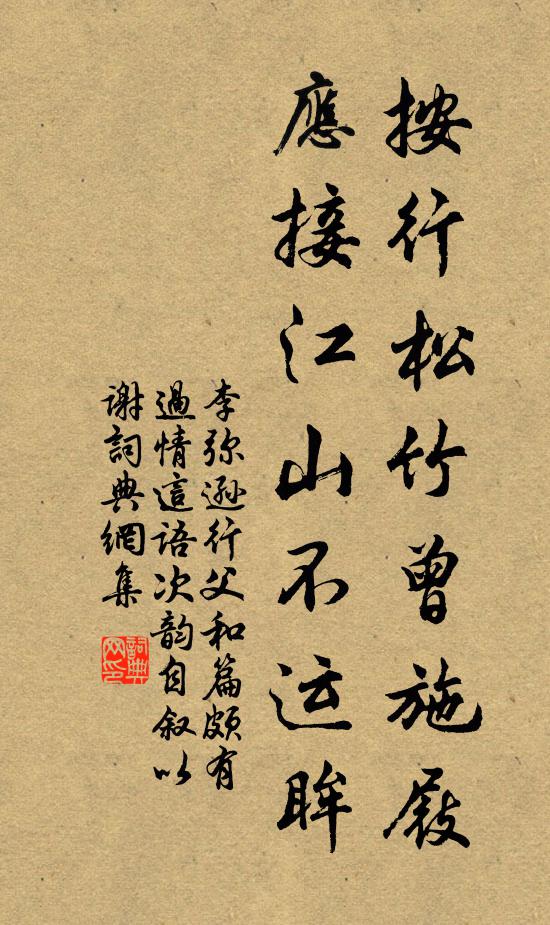 按行松竹曾施屐
應接江山不运眸
李弥遜行父和篇頗有
過情這語次韵自叙以
謝詞典網集
詞典
网印